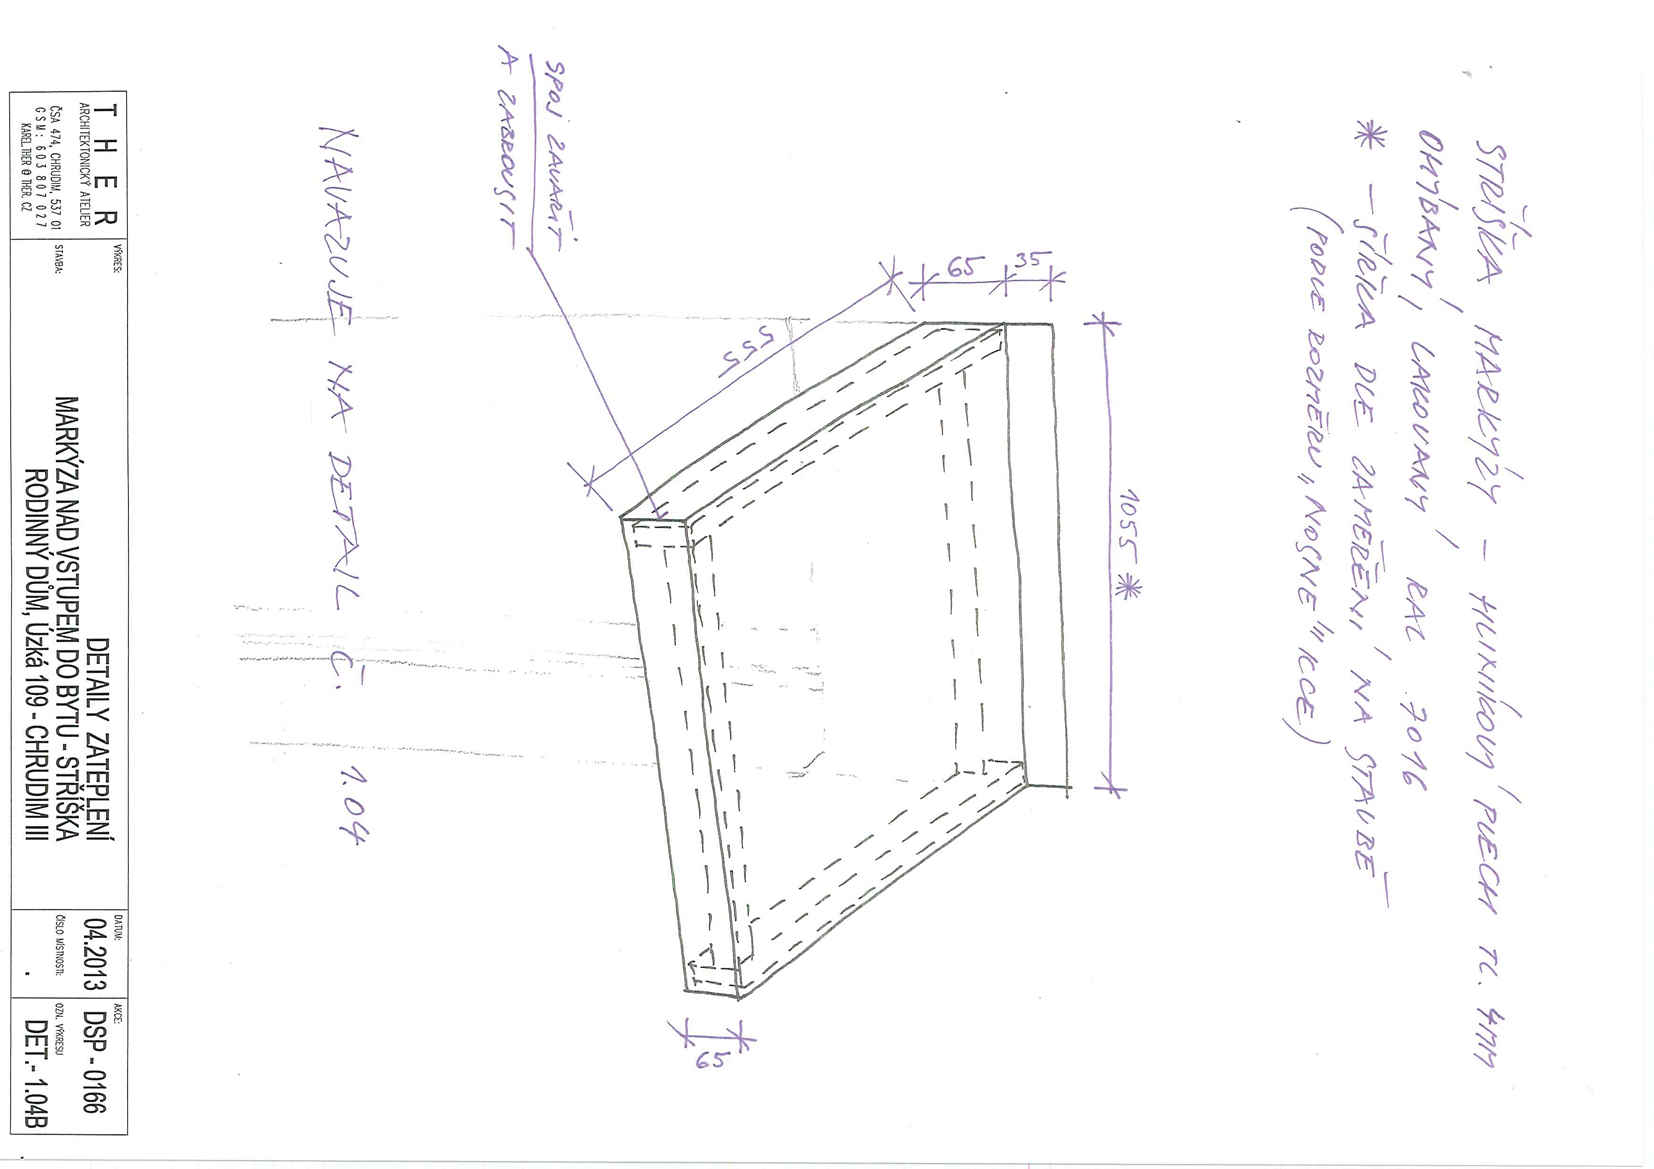 STŘÍŠKA MARKÝZY - HLINÍKOVÝ PLECH TL. 4MM
OHÝBANÝ, LAKOVANÝ, RAL 7016
* - ŠÍŘKA DLE ZAMĚŘENÍ NA STAVBĚ
(PODLE ROZMĚRU „NOSNÉ" KCE)
1055 *
65 35
555
65
SPOJ ZAVAŘIT
A ZABROUSIT
NAVAZUJE NA DETAIL Č. 1.04
THER
ARCHITEKTONICKÝ ATELIER
ČSA 474, CHRUDIM, 537 01
GSM: 603 807 027
KAREL.THER@THER.CZ
VÝKRES:
DETAILY ZATEPLENÍ
MARKÝZA NAD VSTUPEM DO BYTU - STŘÍŠKA
STAVBA:
RODINNÝ DŮM, Úzká 109 - CHRUDIM III
DATUM:
04.2013
ČÍSLO MÍSTNOSTI:
.
AKCE:
DSP - 0166
OZN. VÝKRESU
DET.- 1.04B